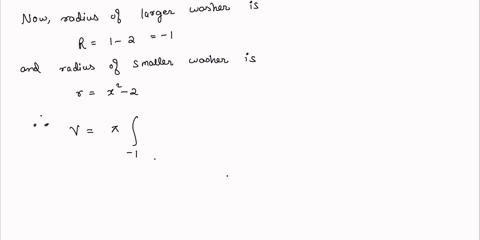 Now, radius of larger washer is
R = 1 - 2 = -1
and radius of smaller washer is
r = x² - 2
∴ V = π ∫₋₁